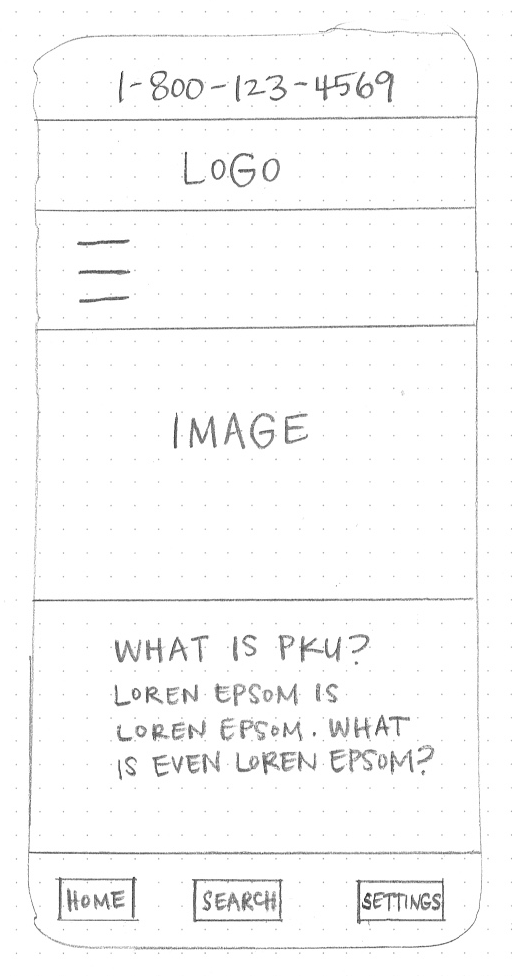 1-800-123-4569
LOGO
IMAGE
WHAT IS PKU?
LOREN EPSOM IS
LOREN EPSOM. WHAT
IS EVEN LOREN EPSOM?
HOME SEARCH SETTINGS